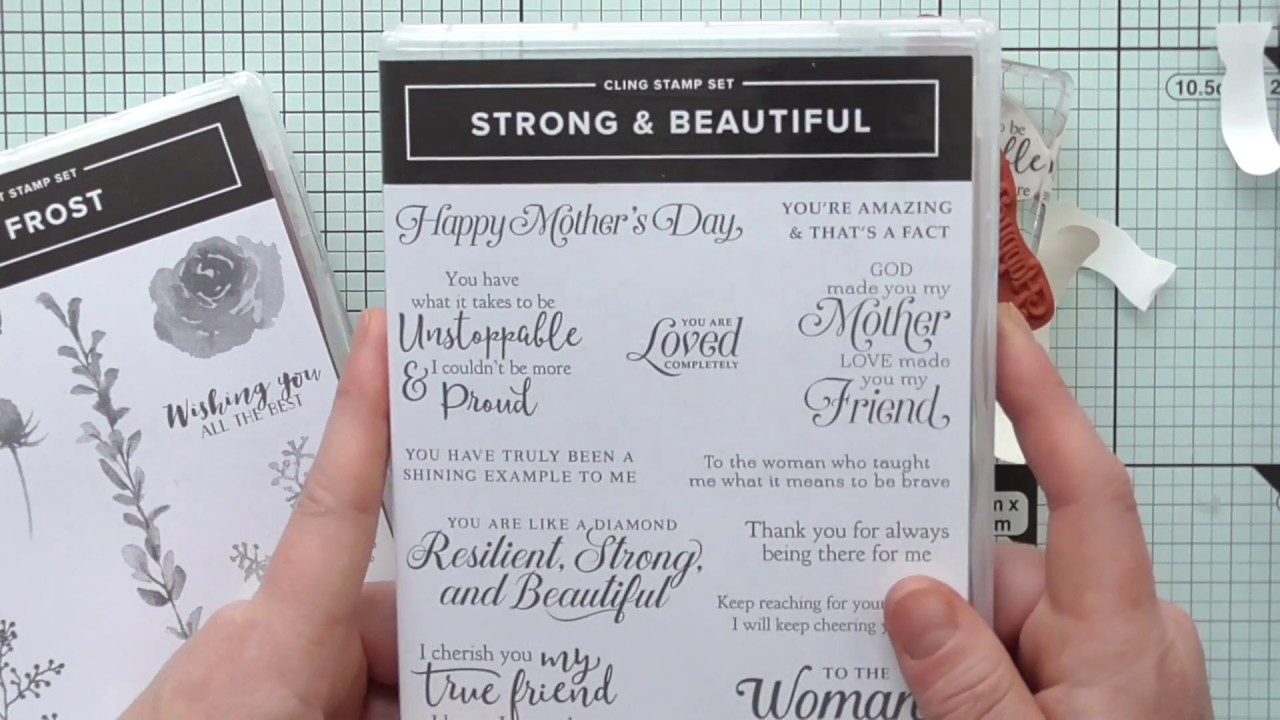 CLING STAMP SET
STRONG & BEAUTIFUL
Happy Mother's Day
YOU'RE AMAZING
& THAT'S A FACT
You have
what it takes to be
Unstoppable
& I couldn't be more
Proud
YOU ARE
Loved
COMPLETELY
GOD
made you my
Mother
LOVE made
you my
Friend
YOU HAVE TRULY BEEN A
SHINING EXAMPLE TO ME
To the woman who taught
me what it means to be brave
YOU ARE LIKE A DIAMOND
Resilient, Strong,
and Beautiful
Thank you for always
being there for me
Keep reaching for your
I will keep cheering
I cherish you my
true friend
TO THE
Woman
STAMP SET
FROST
Wishing you
ALL THE BEST
be
re
10.5